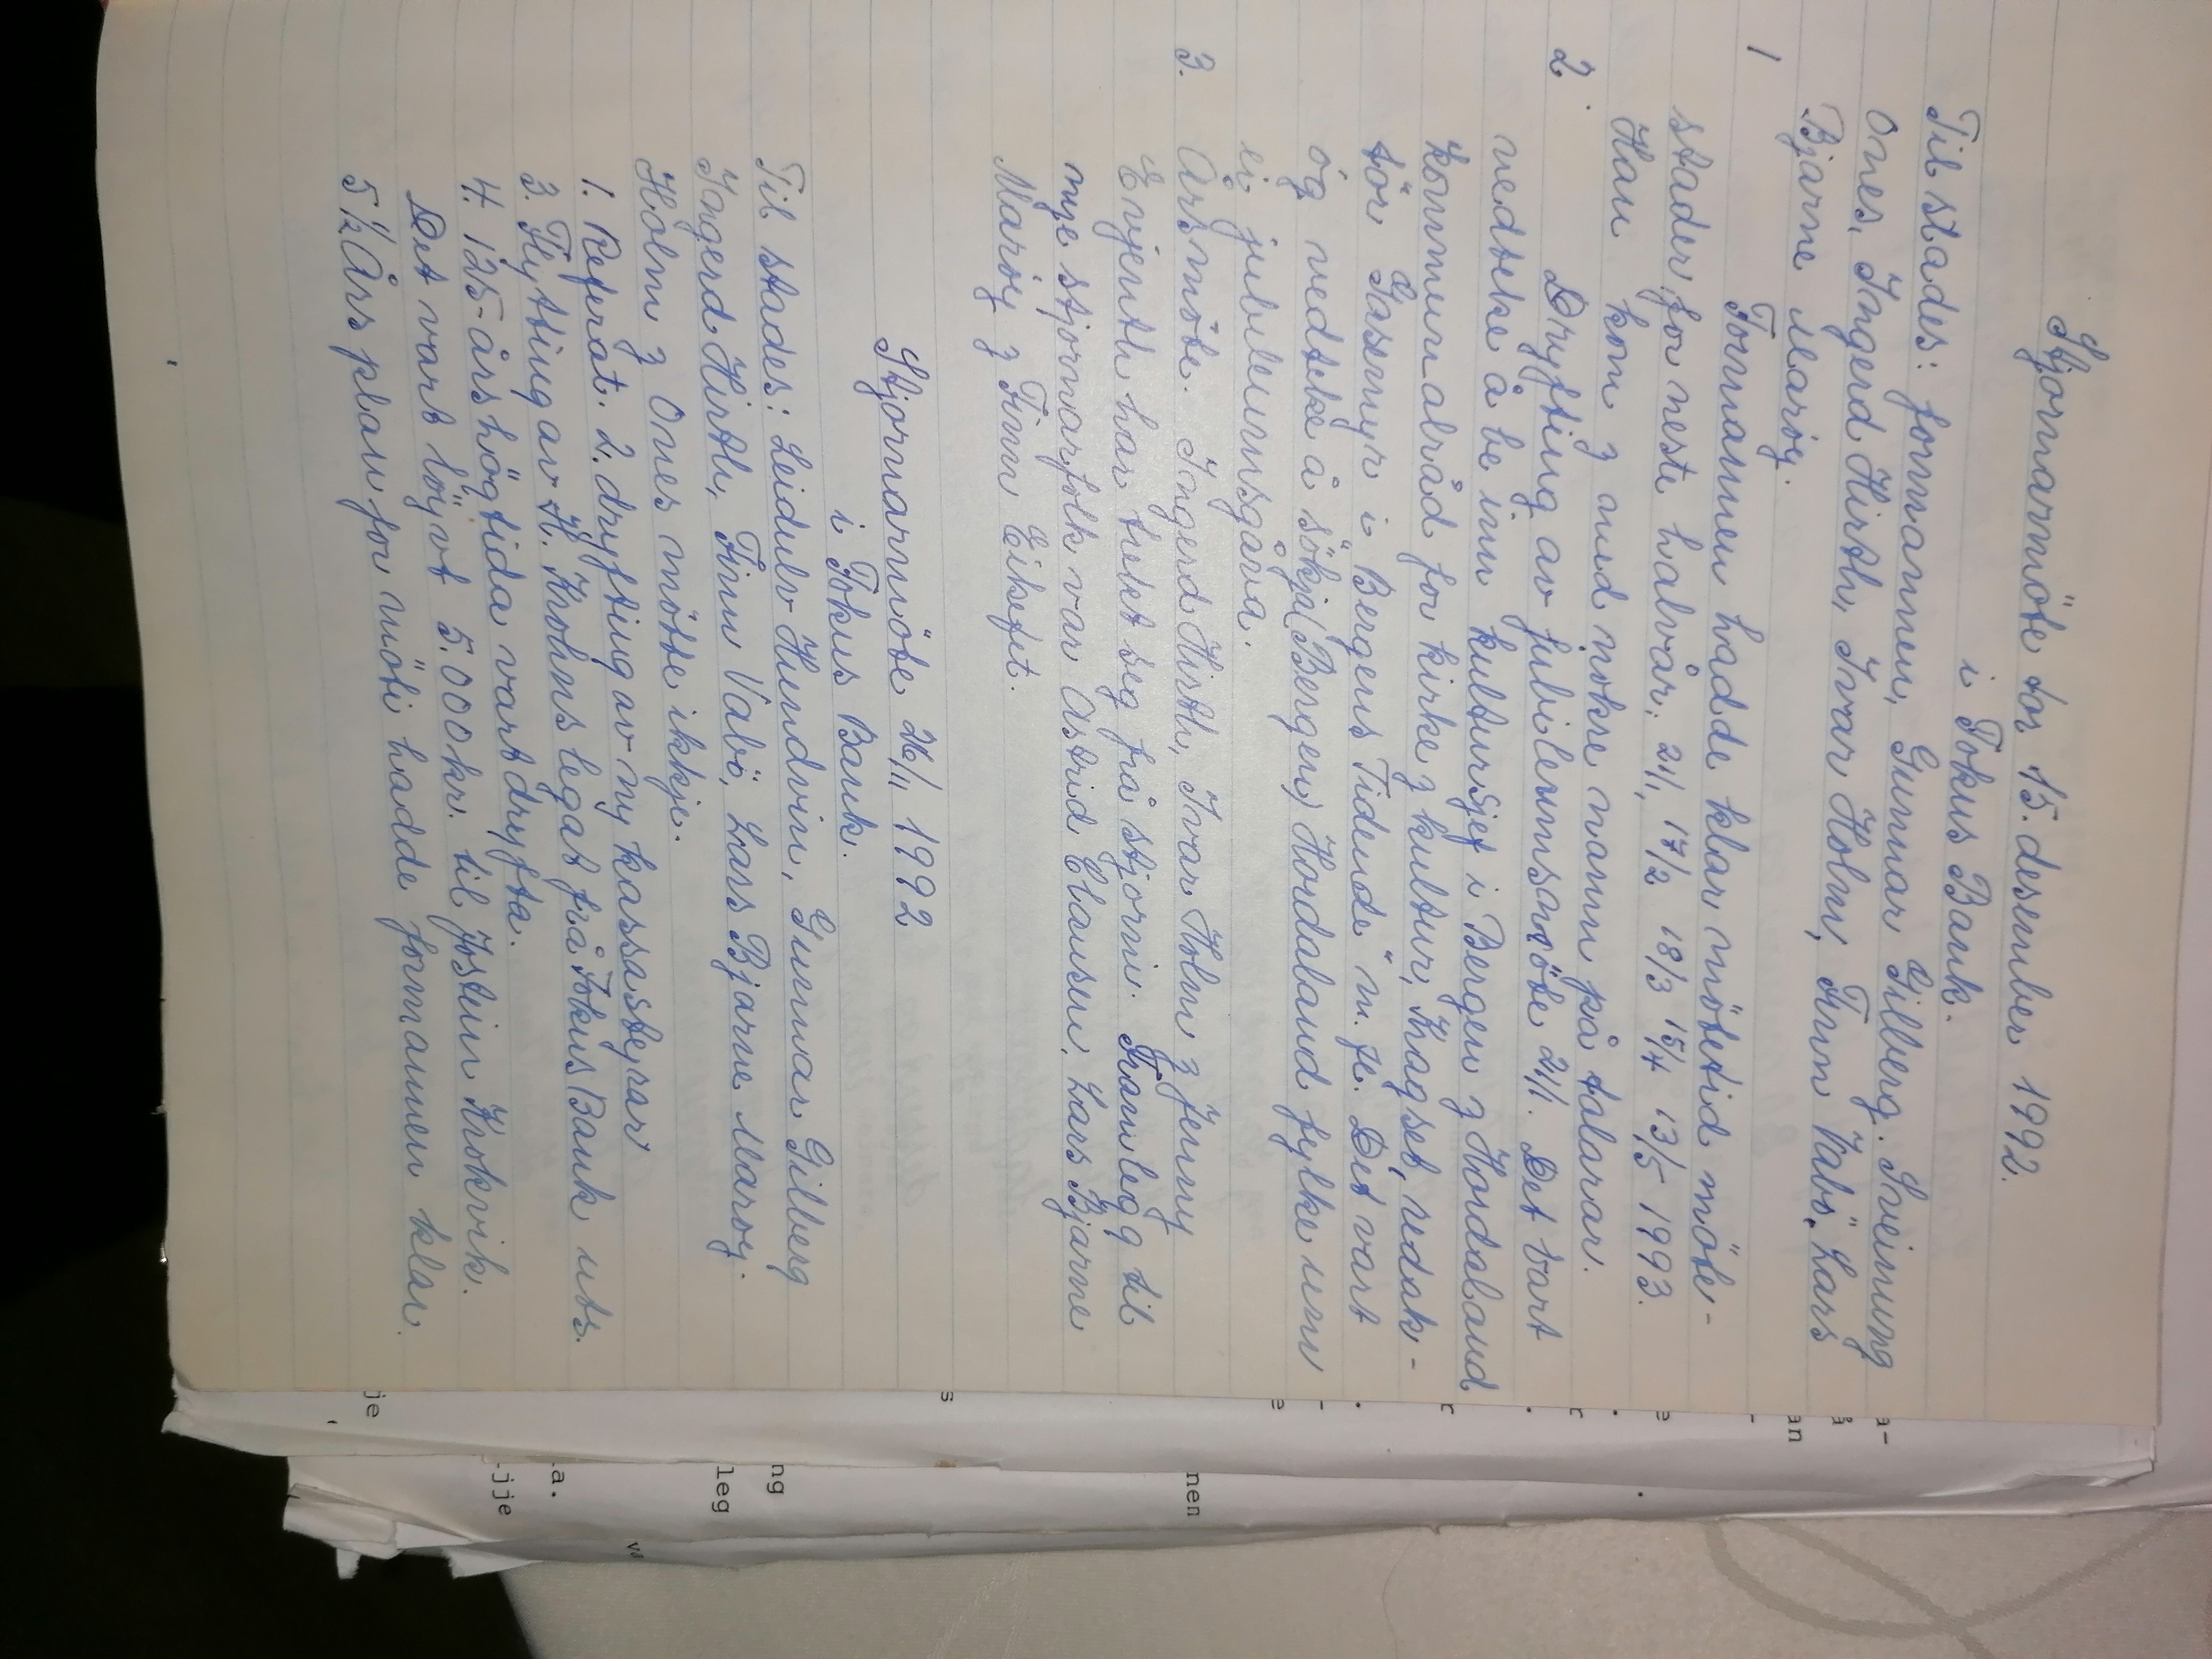 Stjornarmöte den 15. desember 1992.
i Fokus Bank.
Til stades: formannen, Gunnar Gilberg. Sveinung
Ones, Ingerd Hirth, Ivar Holm, Finn Vabö. Lars
Bjarne Marøy.
1 Formannen hadde klar mötetid möte-
stader for neste halvår: 21/1, 17/2 18/3 15/4 13/5 1993.
Han kom og med nokre namn på talarar.
2. Dryfting av jubileumsmöte 21/1. Det vart
vedteke å be inn kultursjef i Bergen og Hordaland
kommunalråd for kirke og kultur, Kragset, redak-
tör Gasemyr i Bergens Tidende" m. fl. Det vart
óg vedteke å sökja (Bergen) Hordaland fylke um
ei jubileumsgåva.
3. Årsmöte. Ingerd Hirth, Ivar Holm og Jenny
Evjenth har tulet seg frå stjorni. Framlegg til
nye stjornarfolk var Astrid Clausen, Lars Bjarne
Marøy og Finn Eikefet.
Stjornarmöte 26/11 1992
i Fokus Bank.
Til stades: Leidulv Hundvin, Gunnar Gilberg
Ingerd Hirth, Finn Vabö, Lars Bjarne Marøy.
Holm og Ones mötte ikkje.
1. Referat. 2. dryfting av ny kassastyrar
3. Flytting av K. Krohns legat frå Fokus Bank uts.
4. 125-års högtida vart dryfta.
Det vart löyvt 5.000 kr. til Jostein Krokvik.
5 1/2 Års plan for möti hadde formannen klar.
je
s
e
-
.
r
.
r
.
e
-
an
å
a-
jje
a.
leg
ng
nen
.
va